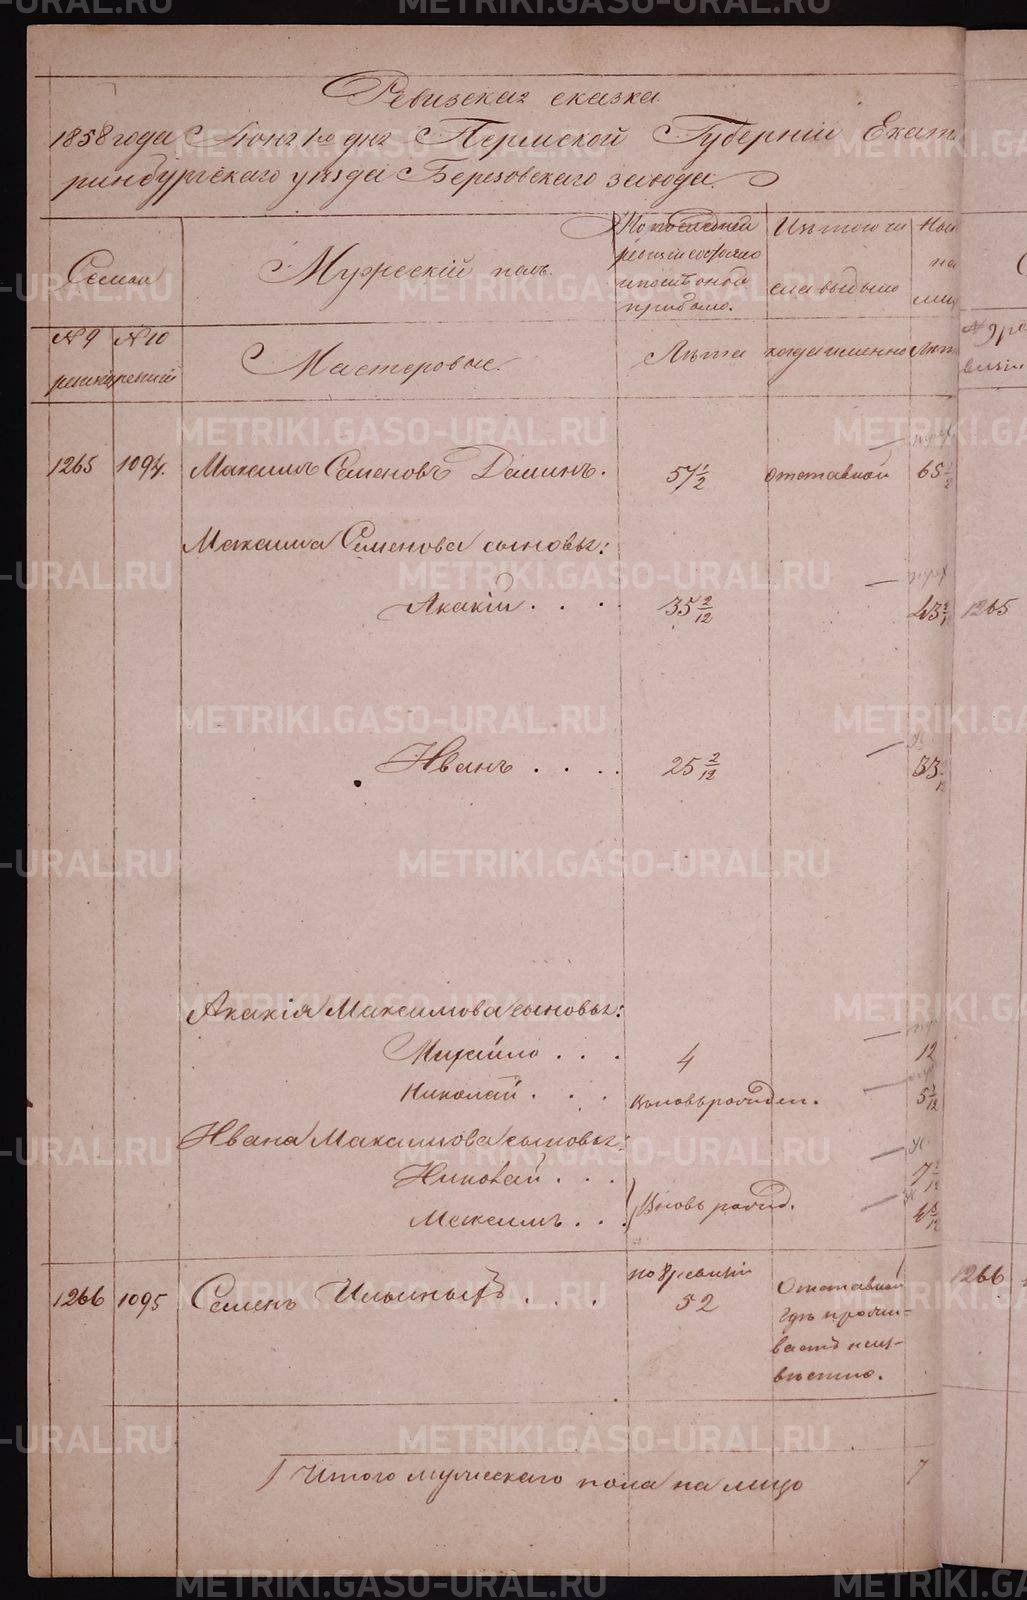 Ревизская сказка
1858 года Іюня 1го дня Пермской Губерніи Екате
ринбургскаго уѣзда Березовскаго завода.
Семьи
Мужескій полъ.
По последней
ревизіи состояло
и после оной
прибыло.
Изъ того чи
сла выбыло
Ныне
на
лицо
№ 9
№ 10
ревизіи
ревизіи
Мастеровые.
Лѣта
когда именно
Лѣта
№ 9 ре
визіи
1265 1094. Максимъ Семеновъ Деминъ. 57 1/2 отставной 65 1/2
Максима Семенова сыновья:
Акакій . . . 35 2/12 43 2/12 1265
Иванъ . . . . 25 2/12 33 2/12
Акакія Максимова сыновья:
Михайло . . . 4 12
Николай . . . вновь рожден. 5 3/12
Ивана Максимова сыновья:
Николай . . . 7 1/12
Максимъ . . . вновь рожд. 4 5/12
1266 1095 Семенъ Ильиныхъ . . . . по 9 ревизіи 52 Отставной 1266
гдѣ прожи-
ваетъ неиз-
вѣстно.
Итого мужескаго пола на лицо 7
METRIKI.GASO-URAL.RU